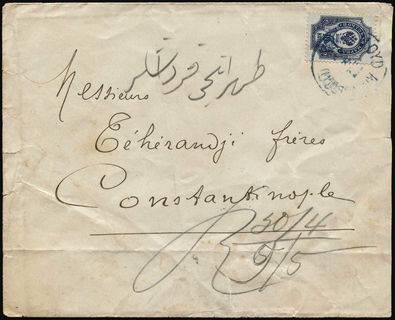 طهرانجی قرداشلر
Messieurs
Téhérandji frères
Constantinople
30/4
5/5